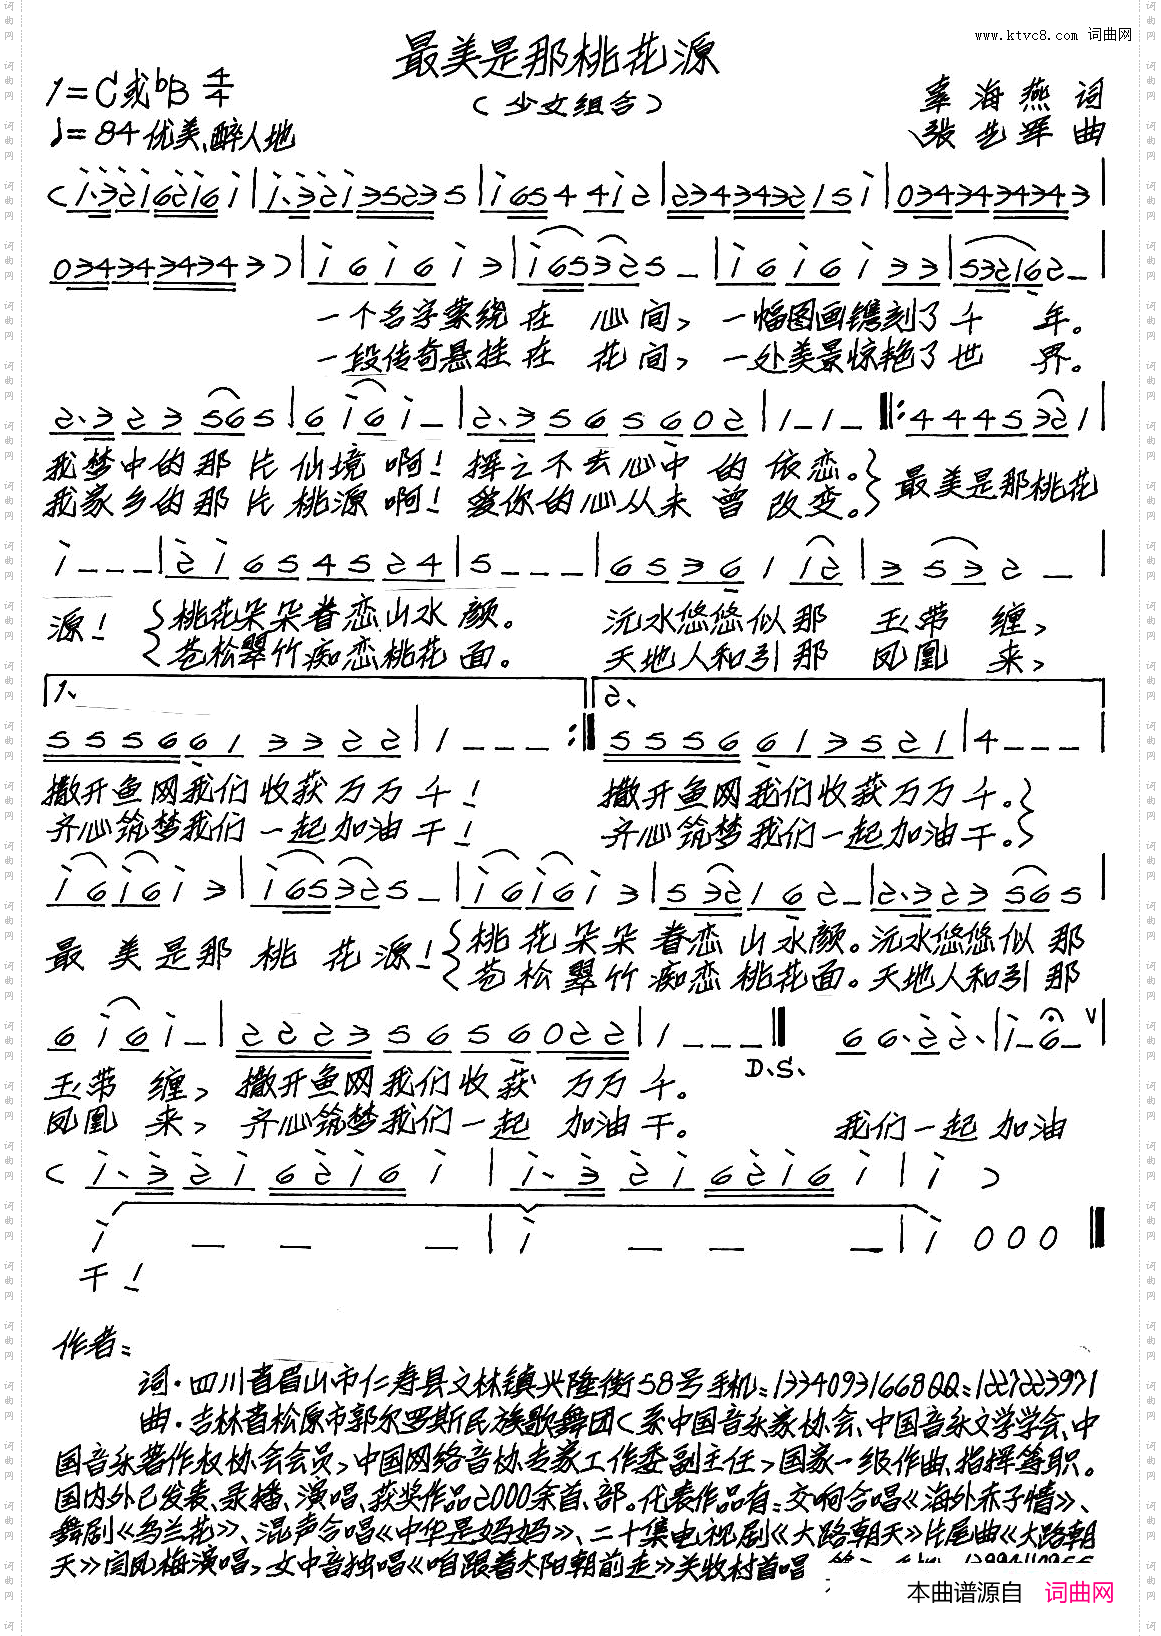 www.ktvc8.com 词曲网
最美是那桃花源
(少文组合)
1=C或bB 4/4
♩=84 优美、醉人地
辜海燕 词
张艺军 曲
(i·3216216i|i·3213523 5|i654 4i2|23434321 5i|0343434343|
0343434343)|i6i6i3|i65325_|i6i6i33|532162_|
一个名字萦绕在心间, 一幅图画镌刻了千年。
一段传奇悬挂在花间, 一处美景惊艳了世界。
2·323 565|6i6i_|2·35656 02|1_1_‖:4445321|
我梦中的那片仙境啊! 挥之不去心中的依恋。
我家乡的那片桃源啊! 爱你的心从未曾改变。
最美是那桃花
i___|2i654524|5___|65361i2|3532_|
源! 桃花朵朵眷恋山水颜。 沅水悠悠似那玉带缠,
苍松翠竹痴恋桃花面。 天地人和引那凤凰来,
1、 2、
5556613322|1___:‖5556613521|4___|
撒开鱼网我们收获万万千! 撒开鱼网我们收获万万千。
齐心筑梦我们一起加油干! 齐心筑梦我们一起加油干。
i6i6i3|i65325_|i6i6i3|532162_|2·323565|
最美是那桃花源! 桃花朵朵眷恋山水颜。沅水悠悠似那
苍松翠竹痴恋桃花面。天地人和引那
6i6i_|22235656022|1___‖ 66·22·|i_6_∨|
D.S.
玉带缠, 撒开鱼网我们收获万万千。
凤凰来, 齐心筑梦我们一起加油干。 我们一起加油
(i·32i62i6i|i·32i62i6i|i)
i _ _ _|i _ _ _|i000‖
干!
作者:
词·四川省眉山市仁寿县文林镇兴隆街58号手机:13340931668QQ:1227223971
曲·吉林省松原市郭尔罗斯民族歌舞团(系中国音乐家协会、中国音乐文学学会、中
国音乐著作权协会会员,中国网络音协专家工作委副主任,国家一级作曲、指挥等职。
国内外已发表、录播、演唱、获奖作品2000余首、部。代表作品有:交响合唱《海外赤子情》、
舞剧《乌兰花》、混声合唱《中华是妈妈》、二十集电视剧《大路朝天》片尾曲《大路朝
天》闫凤梅演唱,女中音独唱《咱跟着太阳朝前走》关牧村首唱
本曲谱源自 词曲网